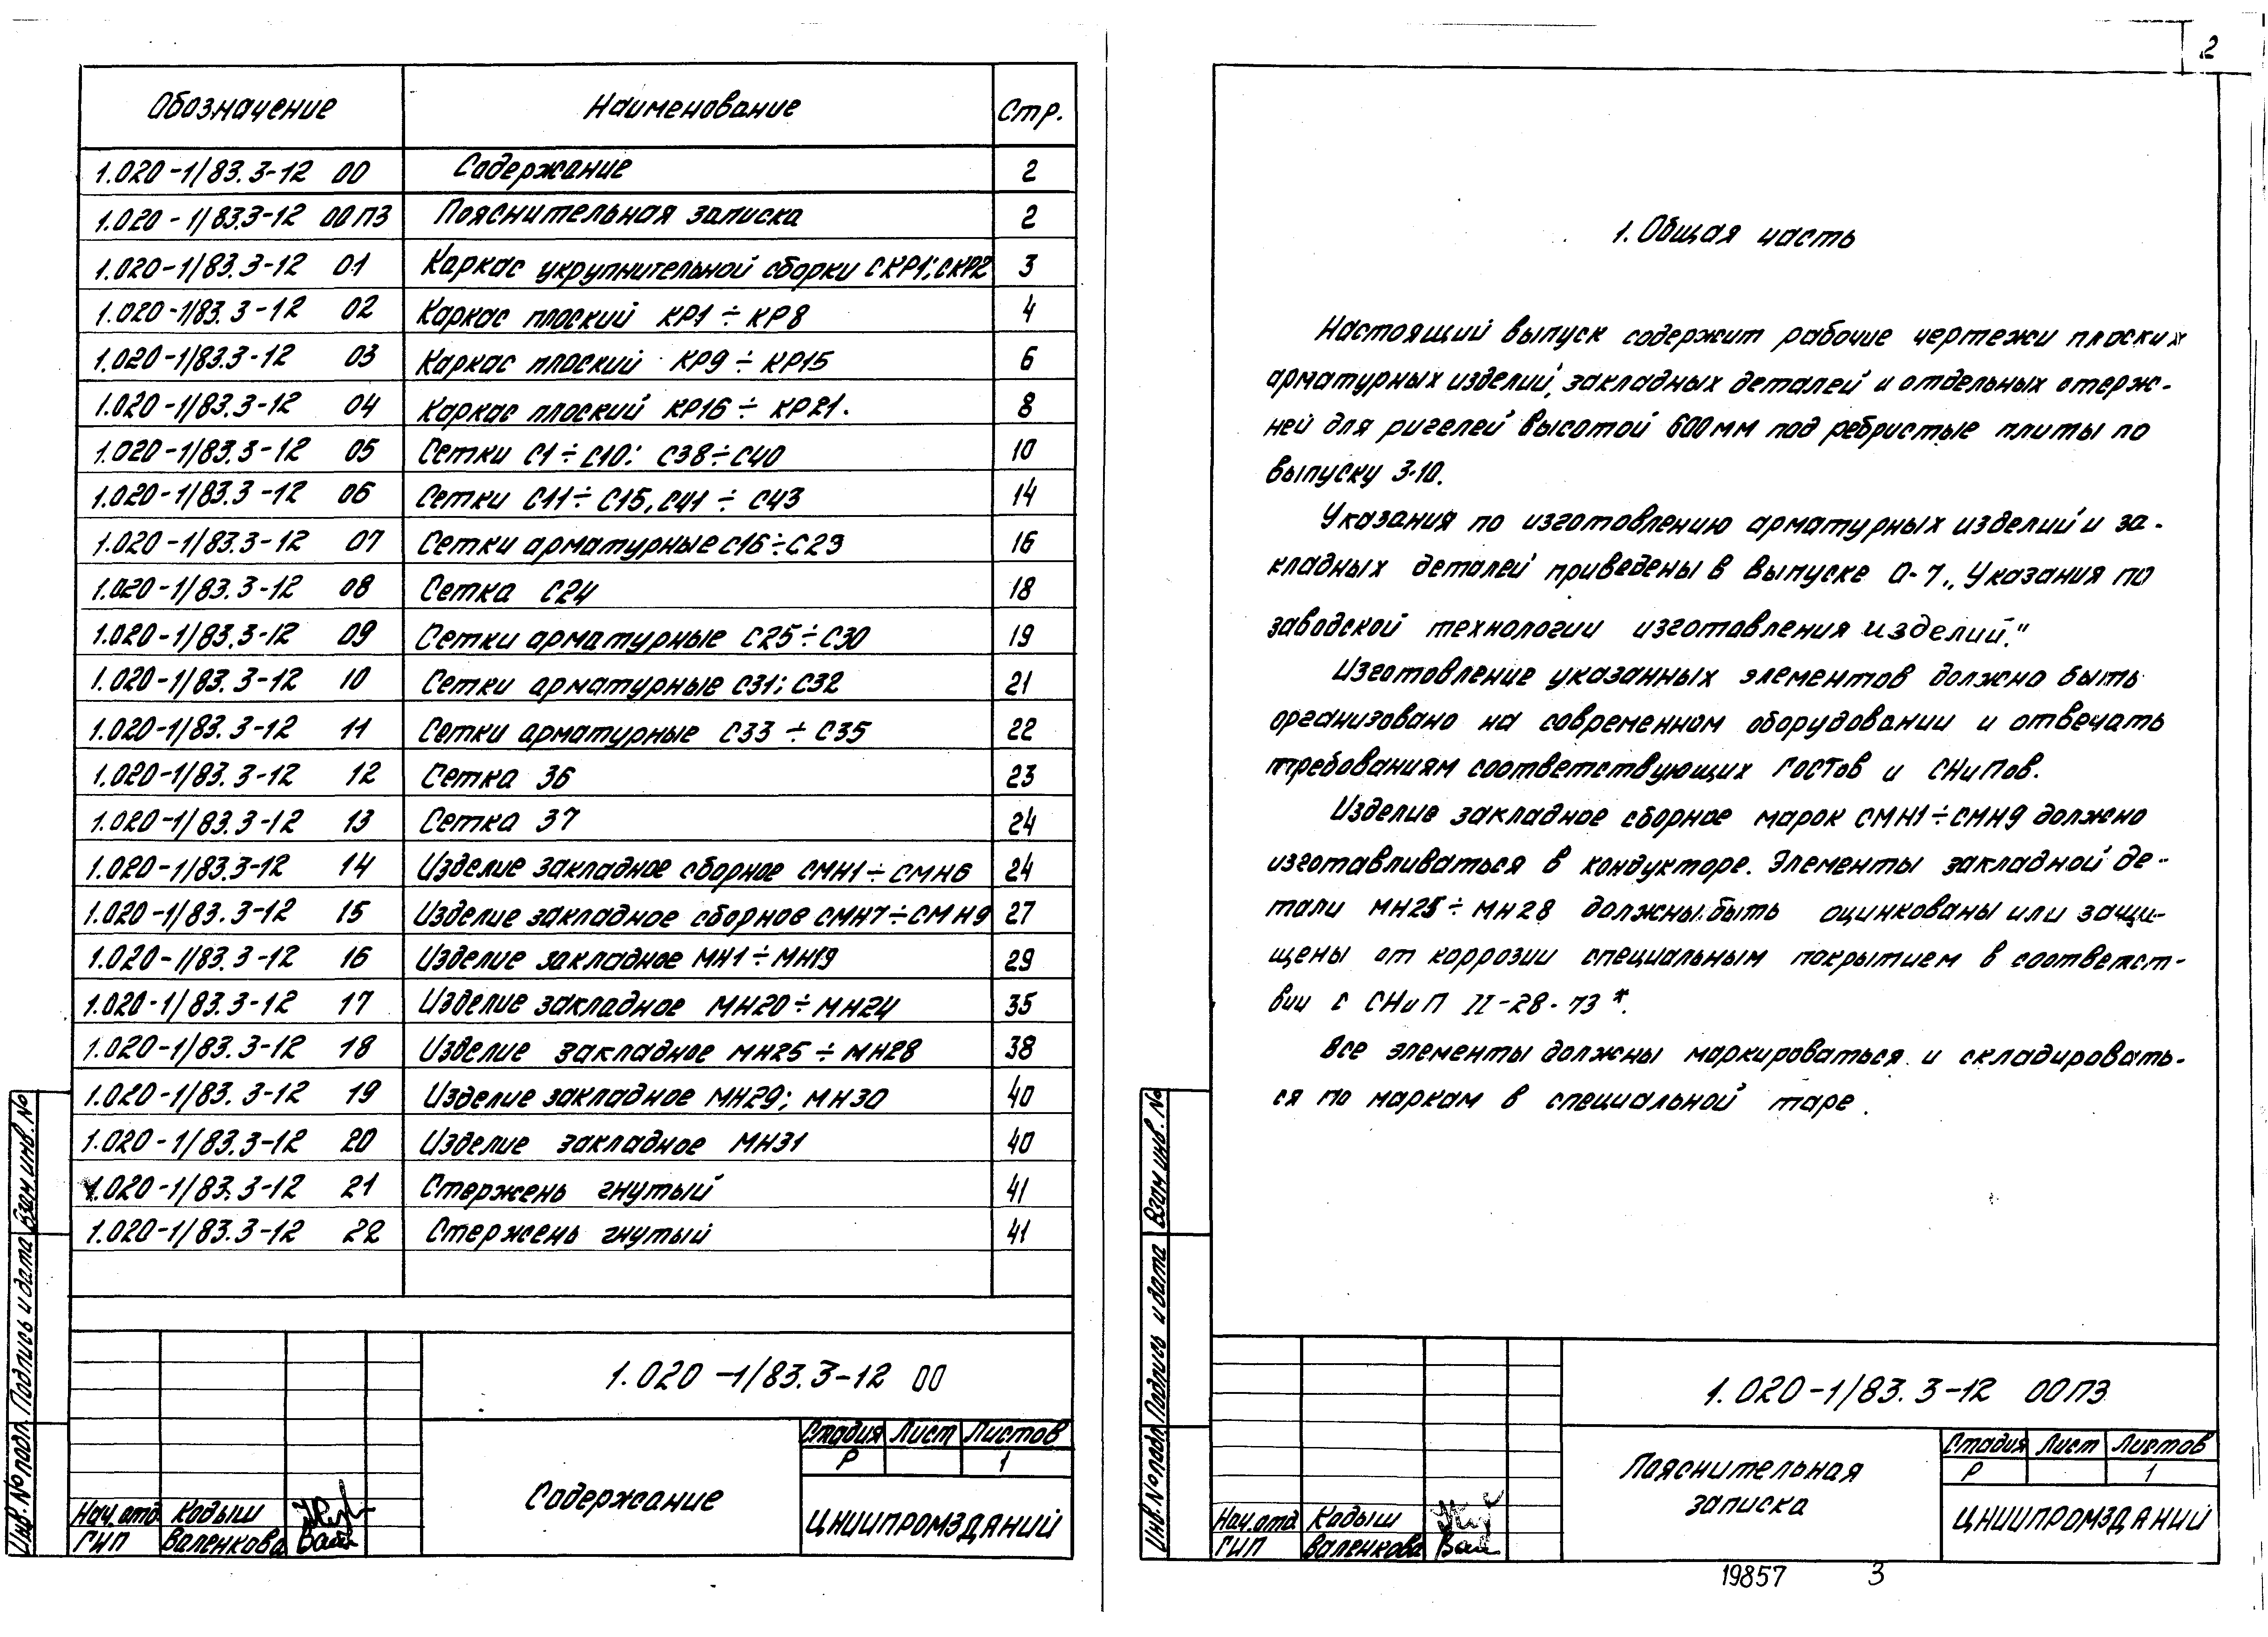 Обозначение Наименование Стр.
1.020-1/83.3-12 00 Содержание 2
1.020-1/83.3-12 00ПЗ Пояснительная записка 2
1.020-1/83.3-12 01 Каркас укрупнительной сборки СКР1; СКР2 3
1.020-1/83.3-12 02 Каркас плоский КР1 ÷ КР8 4
1.020-1/83.3-12 03 Каркас плоский КР9 ÷ КР15 6
1.020-1/83.3-12 04 Каркас плоский КР16 ÷ КР21. 8
1.020-1/83.3-12 05 Сетки С1 ÷ С10; С38 ÷ С40 10
1.020-1/83.3-12 06 Сетки С11 ÷ С15, С41 ÷ С43 14
1.020-1/83.3-12 07 Сетки арматурные С16 ÷ С23 16
1.020-1/83.3-12 08 Сетка С24 18
1.020-1/83.3-12 09 Сетки арматурные С25 ÷ С30 19
1.020-1/83.3-12 10 Сетки арматурные С31; С32 21
1.020-1/83.3-12 11 Сетки арматурные С33 ÷ С35 22
1.020-1/83.3-12 12 Сетка 36 23
1.020-1/83.3-12 13 Сетка 37 24
1.020-1/83.3-12 14 Изделие закладное сборное СМН1 ÷ СМН6 24
1.020-1/83.3-12 15 Изделие закладное сборное СМН7 ÷ СМН9 27
1.020-1/83.3-12 16 Изделие закладное МН1 ÷ МН19 29
1.020-1/83.3-12 17 Изделие закладное МН20 ÷ МН24 35
1.020-1/83.3-12 18 Изделие закладное МН25 ÷ МН28 38
1.020-1/83.3-12 19 Изделие закладное МН29; МН30 40
1.020-1/83.3-12 20 Изделие закладное МН31 40
1.020-1/83.3-12 21 Стержень гнутый 41
1.020-1/83.3-12 22 Стержень гнутый 41
Взам инв. №
Подпись и дата
Инв. № подл.
1.020-1/83.3-12 00
Стадия Лист Листов
Р 1
Содержание
ЦНИИПРОМЗДАНИЙ
Нач. отд. Кодыш
ГИП Валенкова
2
1. Общая часть
Настоящий выпуск содержит рабочие чертежи плоских
арматурных изделий, закладных деталей и отдельных стерж-
ней для ригелей высотой 600мм под ребристые плиты по
выпуску 3-10.
Указания по изготовлению арматурных изделий и за-
кладных деталей приведены в выпуске 0-7 „Указания по
заводской технологии изготовления изделий."
Изготовление указанных элементов должно быть
организовано на современном оборудовании и отвечать
требованиям соответствующих ГОСТов и СНиПов.
Изделие закладное сборное марок СМН1 ÷ СМН9 должно
изготавливаться в кондукторе. Элементы закладной де-
тали МН25 ÷ МН28 должны быть оцинкованы или защи-
щены от коррозии специальным покрытием в соответст-
вии с СНиП II-28-73*.
Все элементы должны маркироваться и складировать-
ся по маркам в специальной таре.
Взам инв. №
Подпись и дата
Инв. № подл.
1.020-1/83.3-12 00ПЗ
Стадия Лист Листов
Р 1
Пояснительная
записка
ЦНИИПРОМЗДАНИЙ
Нач. отд. Кодыш
ГИП Валенкова
19857 3